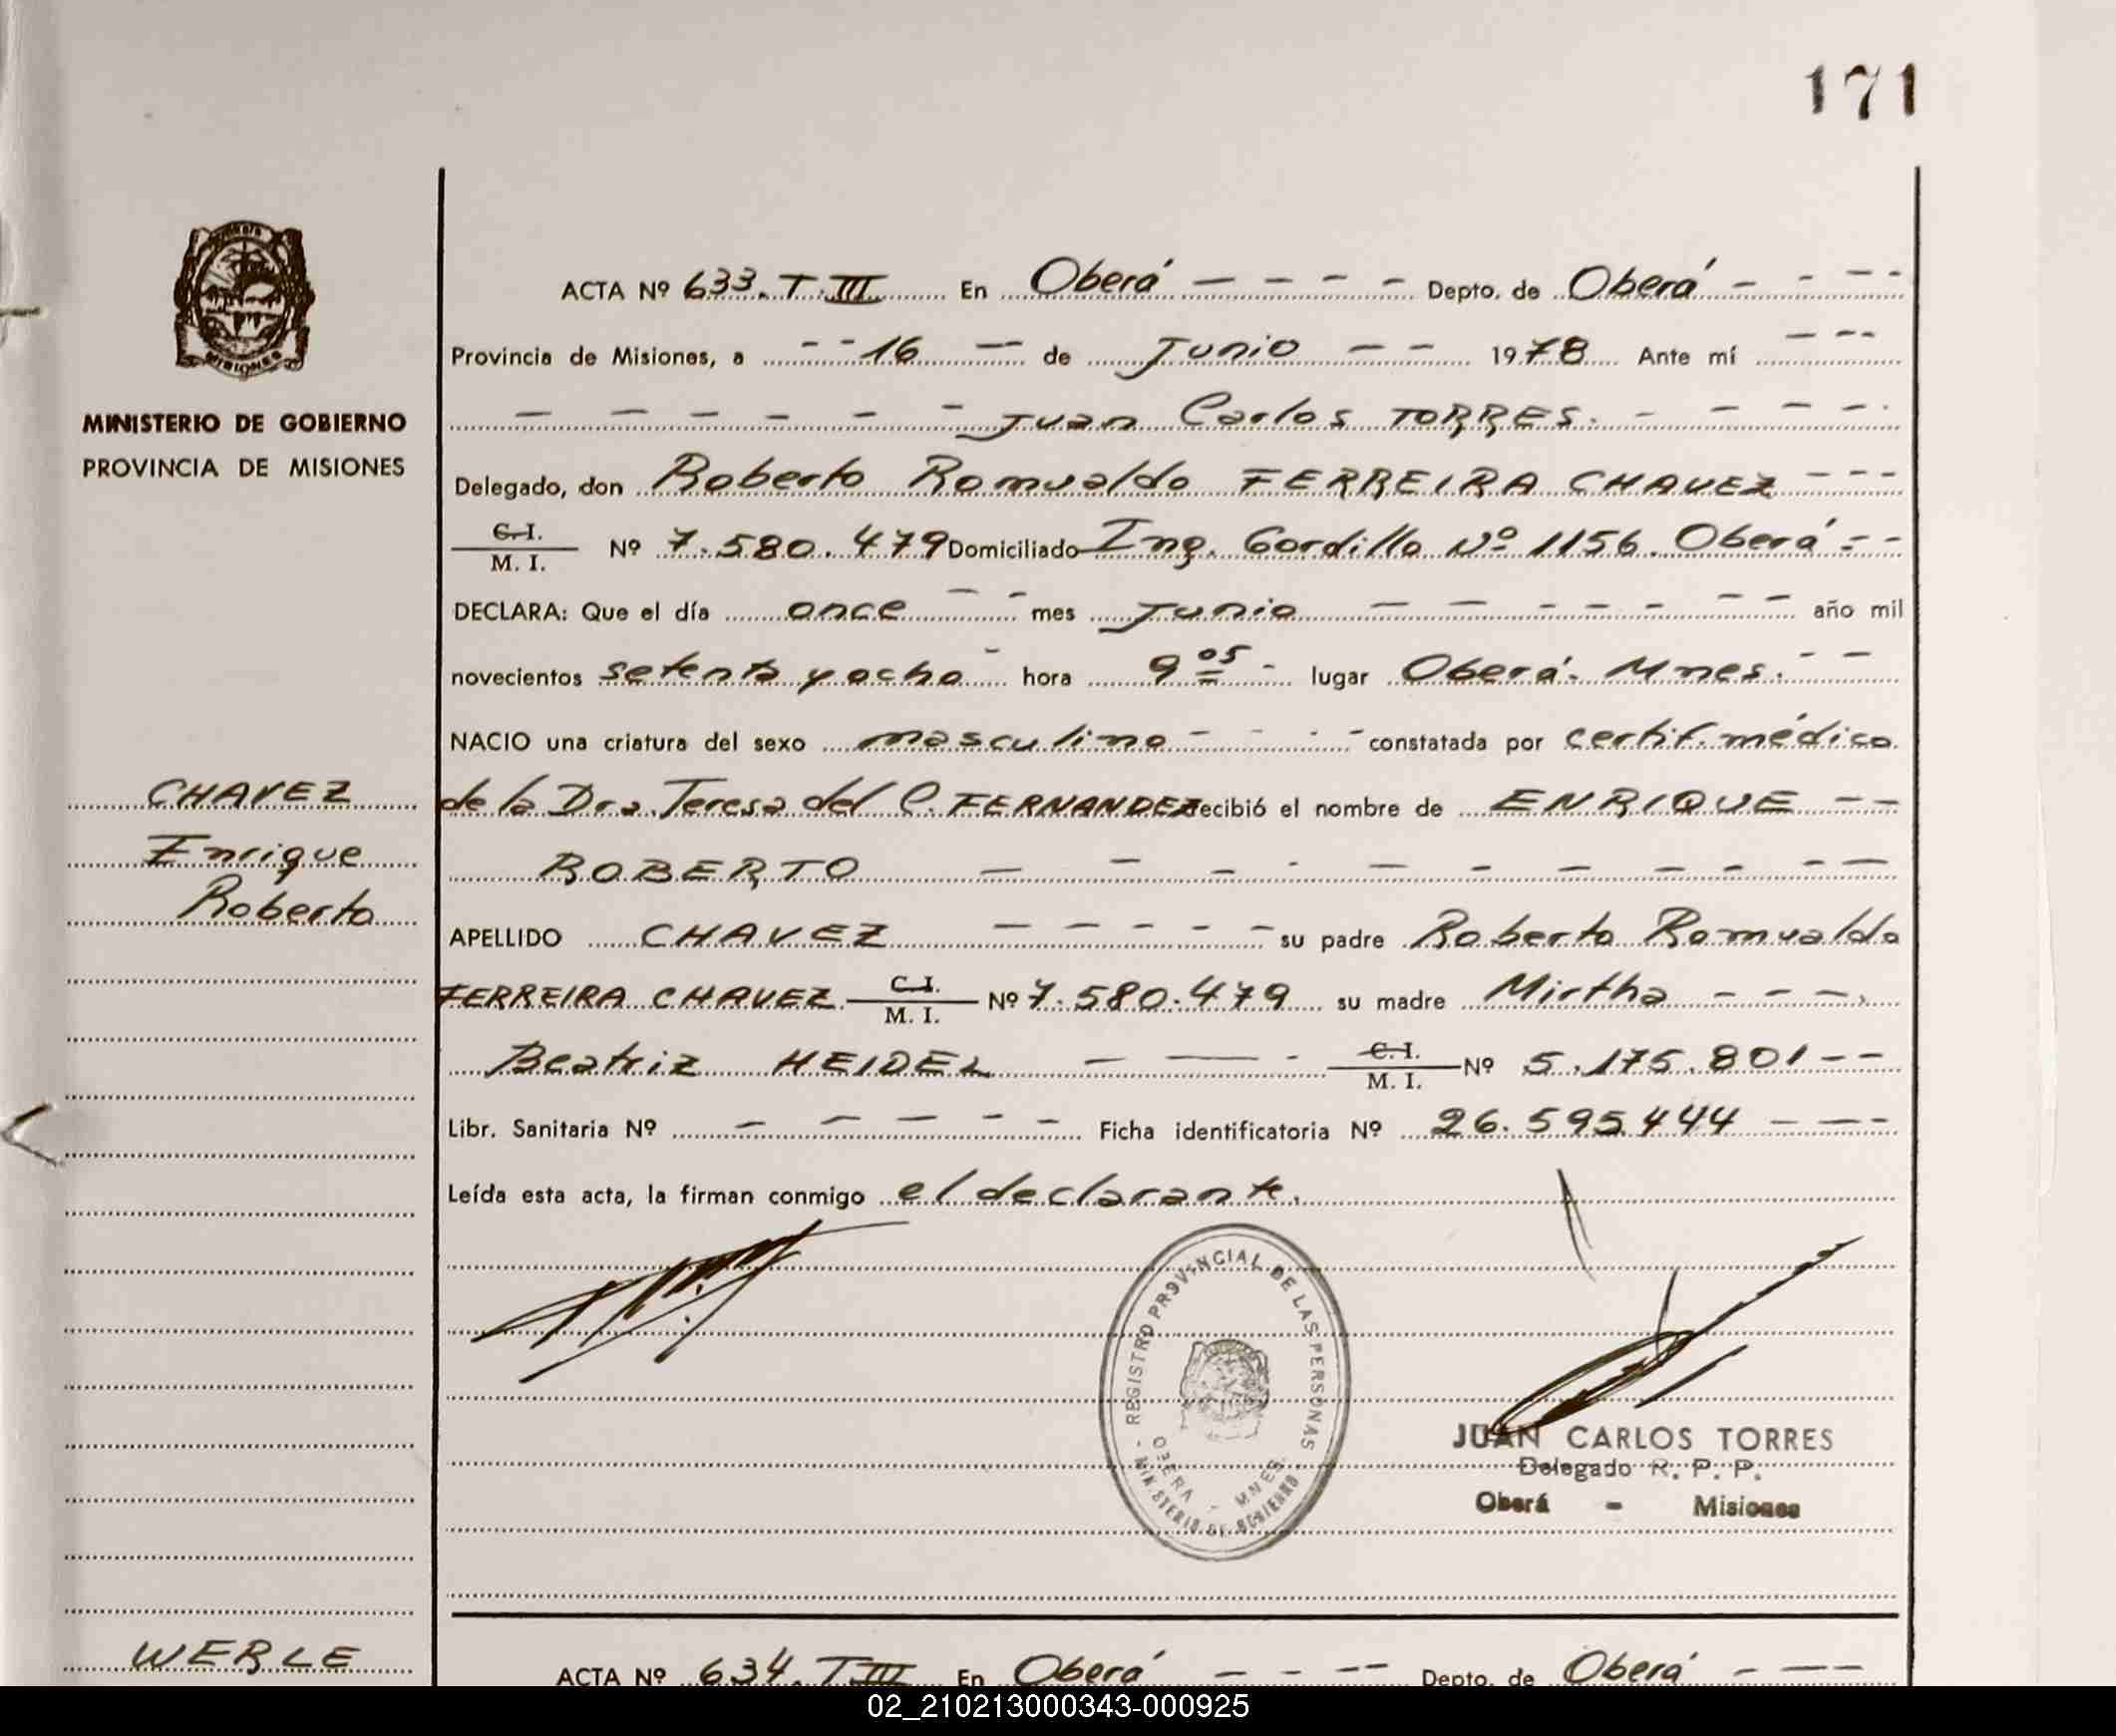 171
MISIONES
MINISTERIO DE GOBIERNO
PROVINCIA DE MISIONES
ACTA Nº 633. T. III En Oberá - - - - Depto. de Oberá - - - -
Provincia de Misiones, a - - 16 - de Junio - - 1978 Ante mí - - -
- - - - - - Juan Carlos TORRES. - - - - -
Delegado, don Roberto Romualdo FERREIRA CHAVEZ - - -
C. I.
M. I. Nº 7.580.479 Domiciliado Ing. Gordillo Nº 1156. Oberá - -
DECLARA: Que el día once - - mes Junio - - - - - - - año mil
novecientos setenta y ocho - hora 9 05 - lugar Oberá. Mnes. - -
NACIO una criatura del sexo masculino - - - - constatada por certif. médico
CHAVEZ
Enrique
Roberto
de la Dra. Teresa del C. FERNANDEZ recibió el nombre de ENRIQUE - -
ROBERTO - - - - - - - - - -
APELLIDO CHAVEZ - - - - - su padre Roberto Romualdo
FERREIRA CHAVEZ. C. I. M. I. Nº 7.580.479 su madre Mirtha - - - -
Beatriz HEIDEL - - - C. I. M. I. Nº 5.175.801 - -
Libr. Sanitaria Nº - - - - - Ficha identificatoria Nº 26.595.444 - - -
Leída esta acta, la firman conmigo el declarante.
- REGISTRO PROVINCIAL DE LAS PERSONAS -
MINISTERIO DE GOBIERNO
OBERA - MNES.
JUAN CARLOS TORRES
Delegado R. P. P.
Oberá - Misiones
WERLE
ACTA Nº 634. T III En Oberá - - - - Depto. de Oberá - - -
02_210213000343-000925